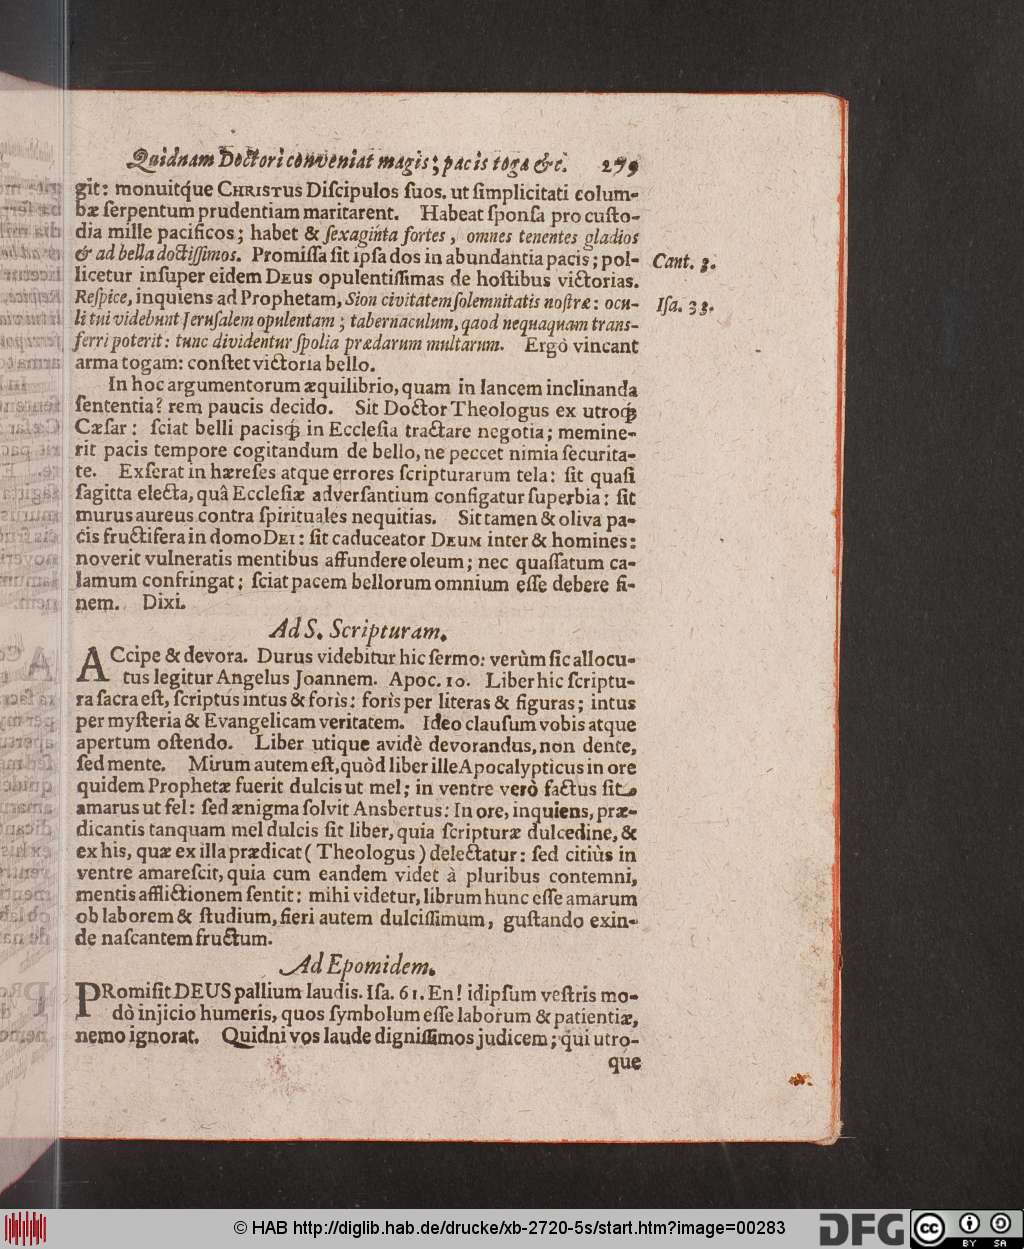 Quidnam Doctori conveniat magis; pacis toga &c. 279
git: monuitq́ue CHRISTUS Diſcipulos ſuos. ut ſimplicitati colum-
bæ ſerpentum prudentiam maritarent. Habeat ſponſa pro cuſto-
dia mille pacificos; habet & ſexaginta fortes, omnes tenentes gladios
& ad bella doctiſſimos. Promiſſa ſit ipſa dos in abundantia pacis; pol- Cant. 3.
licetur inſuper eidem DEUS opulentiſſimas de hoſtibus victorias.
Reſpice, inquiens ad Prophetam, Sion civitatem ſolemnitatis noſtræ: ocu- Iſa. 33.
li tui videbunt Jeruſalem opulentam; tabernaculum, qaod nequaquam trans-
ferri poterit: tunc dividentur ſpolia prædarum multarum. Ergò vincant
arma togam: conſtet victoria bello.
In hoc argumentorum æquilibrio, quam in lancem inclinanda
ſententia? rem paucis decido. Sit Doctor Theologus ex utroq́;
Cæſar: ſciat belli pacisq́; in Eccleſia tractare negotia; memine-
rit pacis tempore cogitandum de bello, ne peccet nimia ſecurita-
te. Exſerat in hæreſes atque errores ſcripturarum tela: ſit quaſi
ſagitta electa, quâ Eccleſiæ adverſantium configatur ſuperbia: ſit
murus aureus contra ſpirituales nequitias. Sit tamen & oliva pa-
cis fructifera in domo DEI: ſit caduceator DEUM inter & homines:
noverit vulneratis mentibus affundere oleum; nec quaſſatum ca-
lamum confringat; ſciat pacem bellorum omnium eſſe debere fi-
nem. Dixi.
Ad S. Scripturam.
ACcipe & devora. Durus videbitur hic ſermo: verùm ſic allocu-
tus legitur Angelus Joannem. Apoc. 10. Liber hic ſcriptu-
ra ſacra eſt, ſcriptus intus & foris: foris per literas & figuras; intus
per myſteria & Evangelicam veritatem. Ideo clauſum vobis atque
apertum oſtendo. Liber utique avidè devorandus, non dente,
ſed mente. Mirum autem eſt, quòd liber ille Apocalypticus in ore
quidem Prophetæ fuerit dulcis ut mel; in ventre verò factus ſit
amarus ut fel: ſed ænigma ſolvit Ansbertus: In ore, inquiens, præ-
dicantis tanquam mel dulcis ſit liber, quia ſcripturæ dulcedine, &
ex his, quæ ex illa prædicat (Theologus) delectatur: ſed citiùs in
ventre amareſcit, quia cum eandem videt à pluribus contemni,
mentis afflictionem ſentit: mihi videtur, librum hunc eſſe amarum
ob laborem & ſtudium, fieri autem dulciſſimum, guſtando exin-
de naſcantem fructum.
Ad Epomidem.
PRomiſit DEUS pallium laudis. Iſa. 61. En! idipſum veſtris mo-
dò injicio humeris, quos ſymbolum eſſe laborum & patientiæ,
nemo ignorat. Quidni vos laude digniſſimos judicem; qui utro-
que
© HAB http://diglib.hab.de/drucke/xb-2720-5s/start.htm?image=00283
DFG
cc BY SA